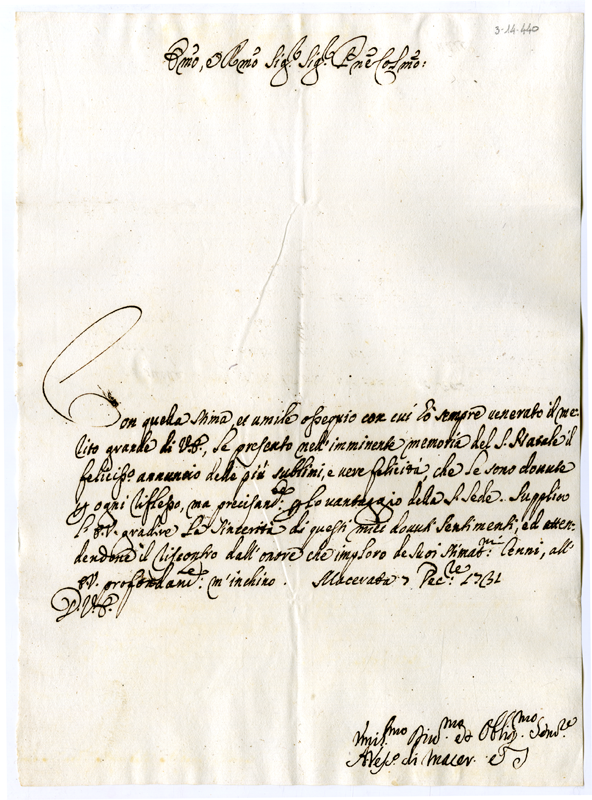 3-14-440
Emo, e Rmo Sig.r Sig.r P.ne Col.mo:
Con quella stima et umile ossequio con cui hò sempre venerato il me-
rito grande di V.E., Le presento nell'imminente memoria del S. Natale il
felicis.o annunzio delle più sublimi, e vere felicità, che Le sono dovute
p ogni riflesso, ma precisam.te p lo vantaggio della S. Sede. Supplico
l'E.V. gradire La sincerità di questi miei dovuti sentimenti, ed atten-
dendone il riscontro dall'onore che imploro de Suoi stimat.mi Cenni, all'
E.V. profondam.te m'inchino. Macerata 7 Xec.re 1731
D.V.E.
Umil.mo Div.mo et Oblig.mo Serv.re
A. Vesc.o di Macer.